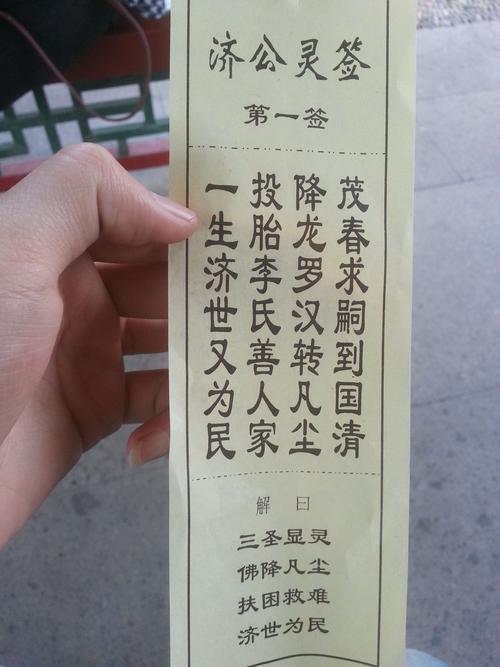 济公灵签
第一签
茂春求嗣到国清
降龙罗汉转凡尘
投胎李氏善人家
一生济世又为民
解曰
三圣显灵
佛降凡尘
扶困救难
济世为民